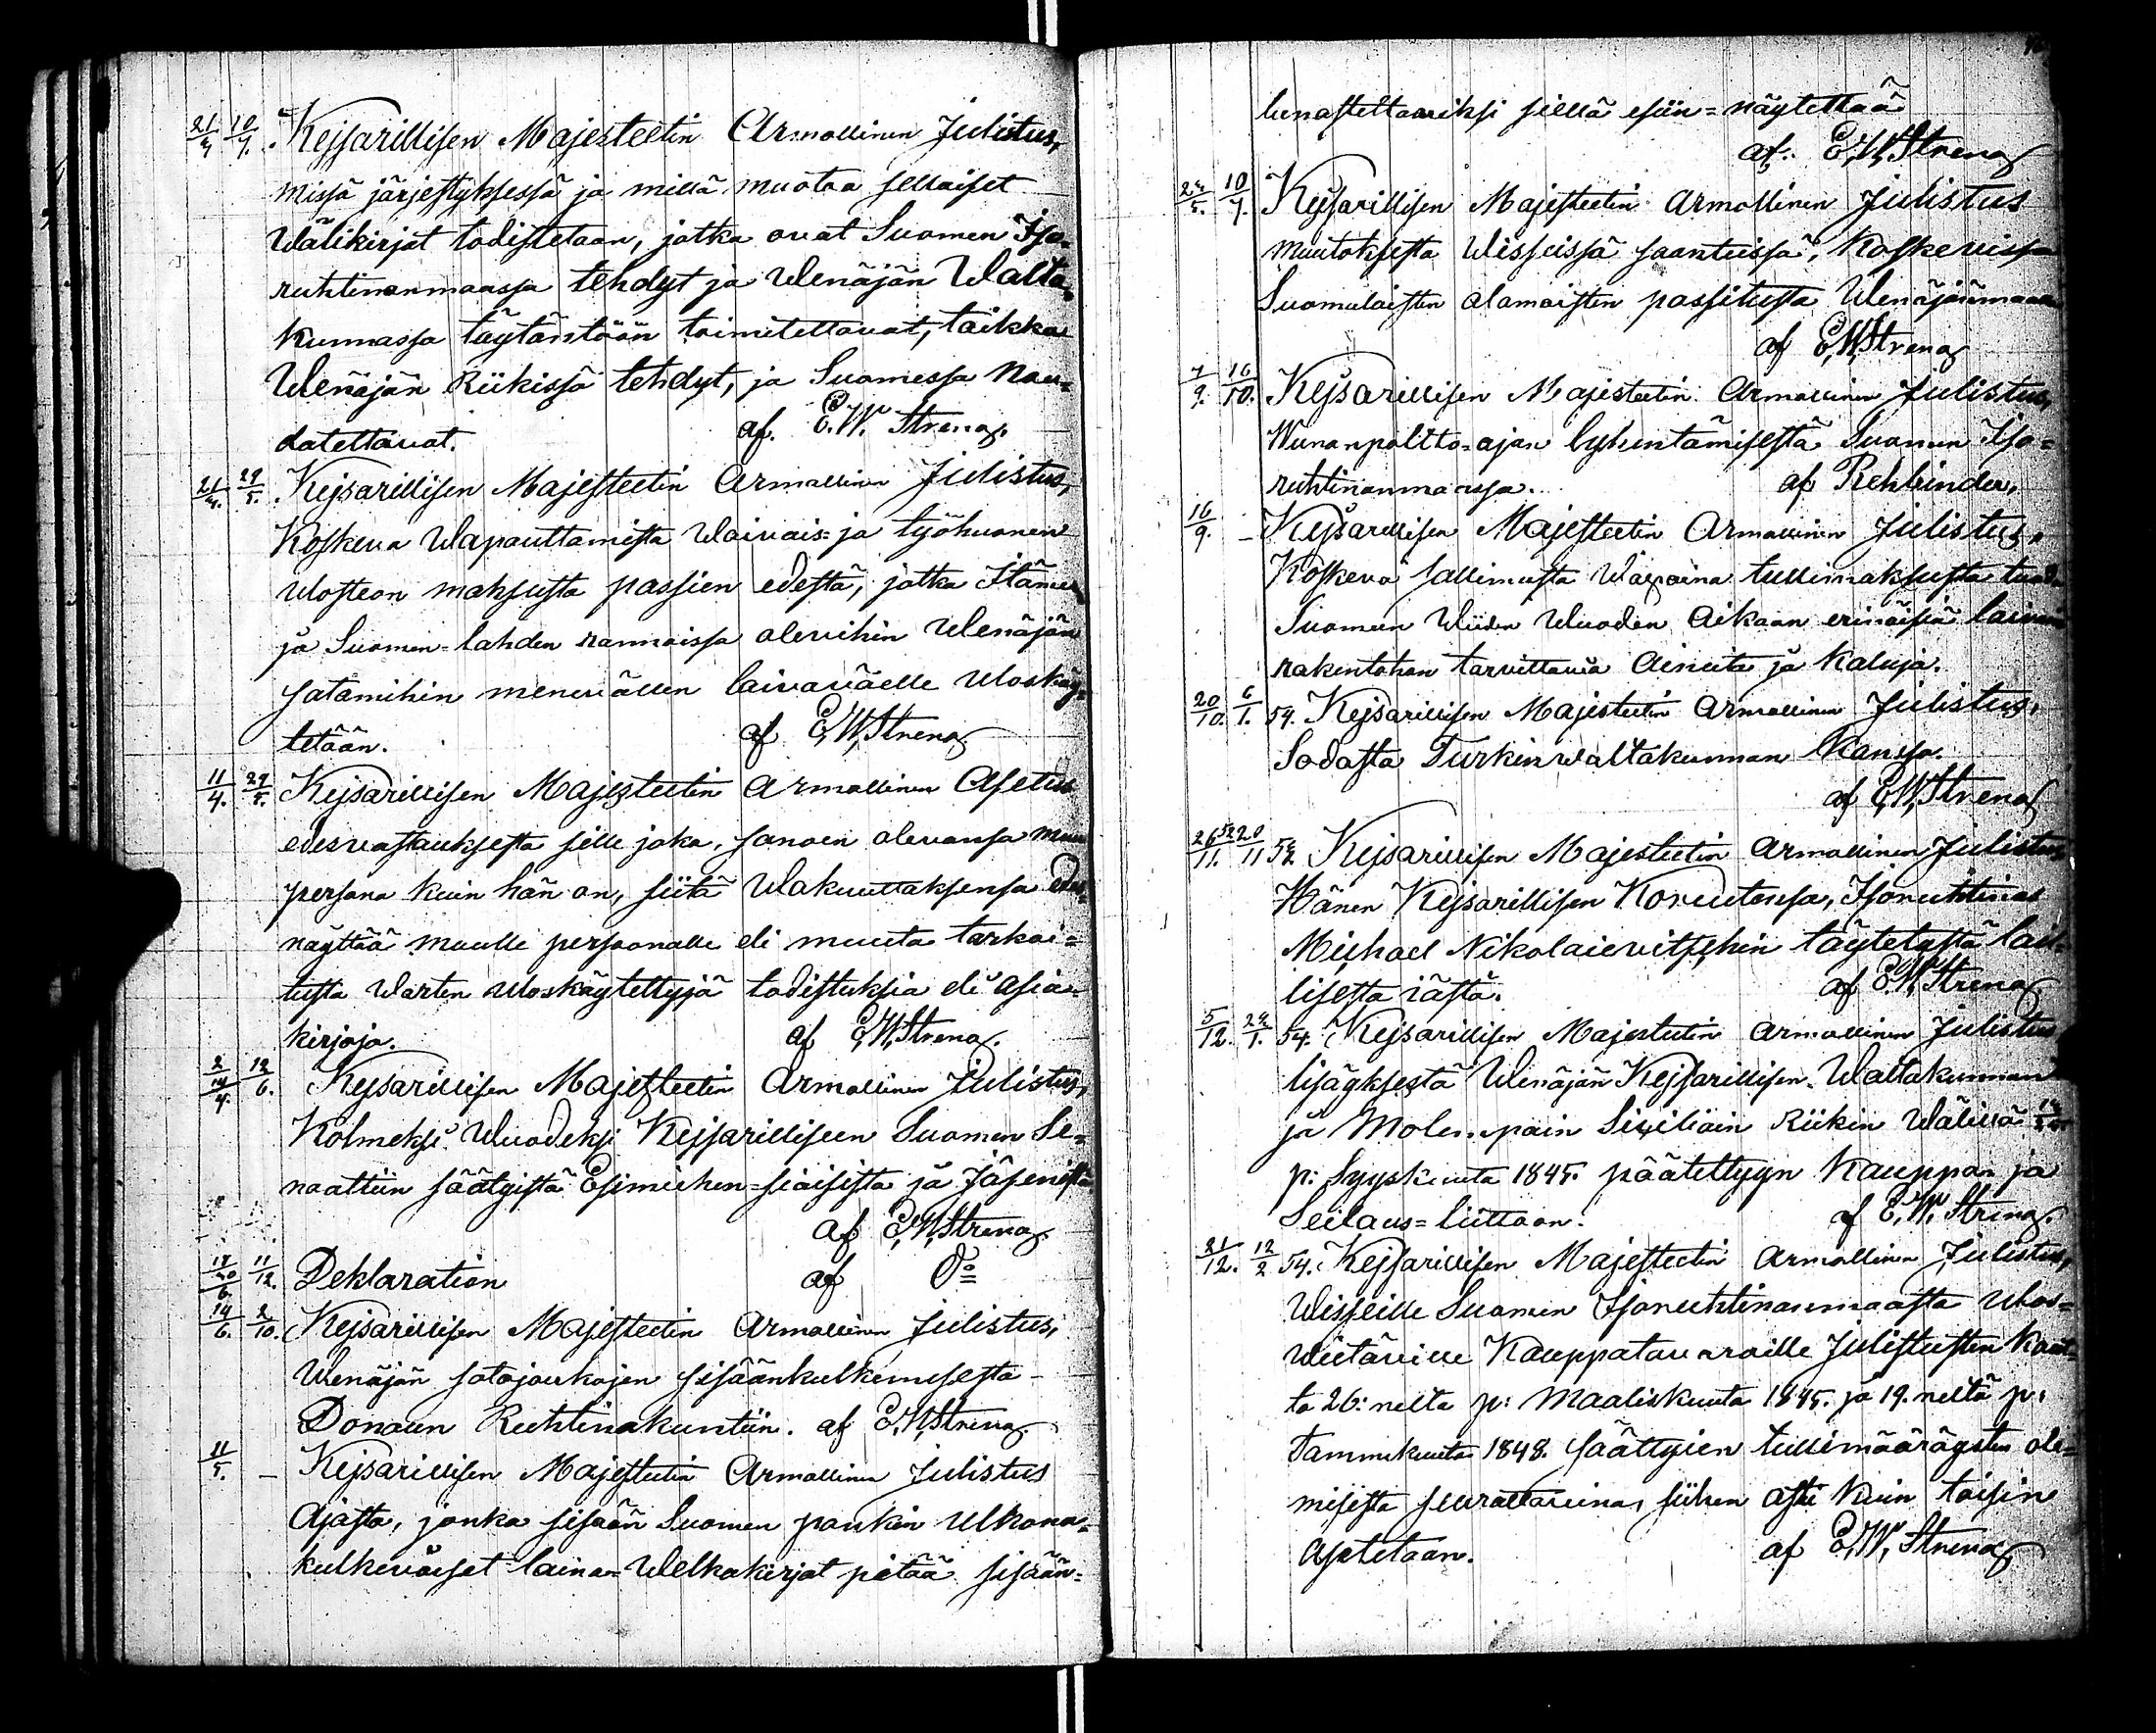 21/4 10/7. Kejsarillisen Majesteetin Armollinen Julistus,
missä järjestyksessä ja millä muotoa sellaiset
Wälikirjat todistetaan, jotka ovat Suomen Iso-
ruhtinanmaassa tehdyt ja Wenäjän Walta-
kunnassa täytäntöön toimitettavat, taikka
Wenäjän Riikissä tehdyt, ja Suomessa nou-
datettavat. af. E. W. Streng.
21/4. 29/5. Kejsarillisen Majesteetin Armollinen Julistus,
Koskeva Wapauttamista Waivais- ja työhuonen
Ulosteon maksusta passien edestä, jotka Itämer
ja Suomen-lahden rannoissa olevihin Wenäjän
satamihin meneväisen laivaväelle Uloskäy-
tetään. af E, W, Streng
11/4. 29/5. Kejsarillisen Majesteetin Armollinen Asetus
edesvastauksesta sille joka, sanoen olevansa muu
persona kuin hän on, siitä Wakuuttaksensa edes-
näyttää muulle personalle eli muuta tarkoi-
tusta Warten Uloskäytettyjä todistuksia eli asia-
kirjoja. af E, W, Streng.
2/14/4. 12/6. Kejsarillisen Majesteetin Armollinen Julistus,
Kolmeksi Wuodeksi Kejsarilliseen Suomen Se-
naattiin säätyistä Esimiehen-siaisista ja Jäsenistä
af E, W, Streng.
18/20/6. 11/12. Deklaration af Do
14/6. 2/10. Kejsarillisen Majesteetin Armollinen Julistus,
Wenäjän sotajoukojen sisäänkulkemisesta
Donaun Ruhtinakuntiin. af E, W, Streng.
11/5. – Kejsarillisen Majesteetin Armollinen Julistus
Ajasta, jonka sisään Suomen pankin Ulkona-
kulkeväiset laina-Welkakirjat pitää sisään-
lunastettaviksi siellä esiin-näytettää
af. E, W, Streng
24/5. 10/7. Kejsarillisen Majesteetin Armollinen Julistus
muutoksesta Wisseissä säänteissä, Koskevissa
Suomalaisten alamaisten passitusta Wenäjänmaan
af E, W, Streng
7/9. 16/10. Kejsarillisen Majesteetin Armollinen Julistus,
Wiinanpoltto-ajan lyhentämisestä Suomen Iso-
ruhtinanmaassa. af Rehbinder,
16/9. – Kejsarillisen Majesteetin Armollinen Julistus,
Koskeva sallimusta Wapaina tullimaksusta tuoda
Suomeen Wiiden Wuoden Aikaan erinäisiä laivan
rakentohon tarvittavia Aineita ja Kaluja.
20/10. 6/1. 54. Kejsarillisen Majesteetin Armollinen Julistus,
Sodasta Turkinwaltakunnan Kanssa.
af E, W, Streng
26/11. 20/11 52 Kejsarillisen Majesteetin Armollinen Julistus,
Hänen Kejsarillisen Korkeutensa, Isoruhtinas
Michael Nikolaievitschin täytetystä lail-
lisesta iästä. af E. W, Streng.
5/12. 24/1. 54. Kejsarillisen Majesteetin Armollinen Julistus
lisäyksestä Wenäjän Kejsarillisen Waltakunnan
ja Molem.pain Sisiliäin Riikin Wälillä
p: Syyskuuta 1845. päätettyyn Kauppa- ja
Seilaus-liittoon. af E, W, Streng.
21/12. 12/2 54. Kejsarillisen Majesteetin Armollinen Julistus,
Wisseille Suomen Isoruhtinanmaasta Ulos-
wietäville Kauppatavaroille Julistusten Kaut-
ta 26:neltä p: Maaliskuuta 1845. ja 19.neltä p:
Tammikuuta 1848. säättyien tullimääräysten ole-
misesta seurattavina, siihen asti Kuin toisin
asetetaan. af E, W, Streng